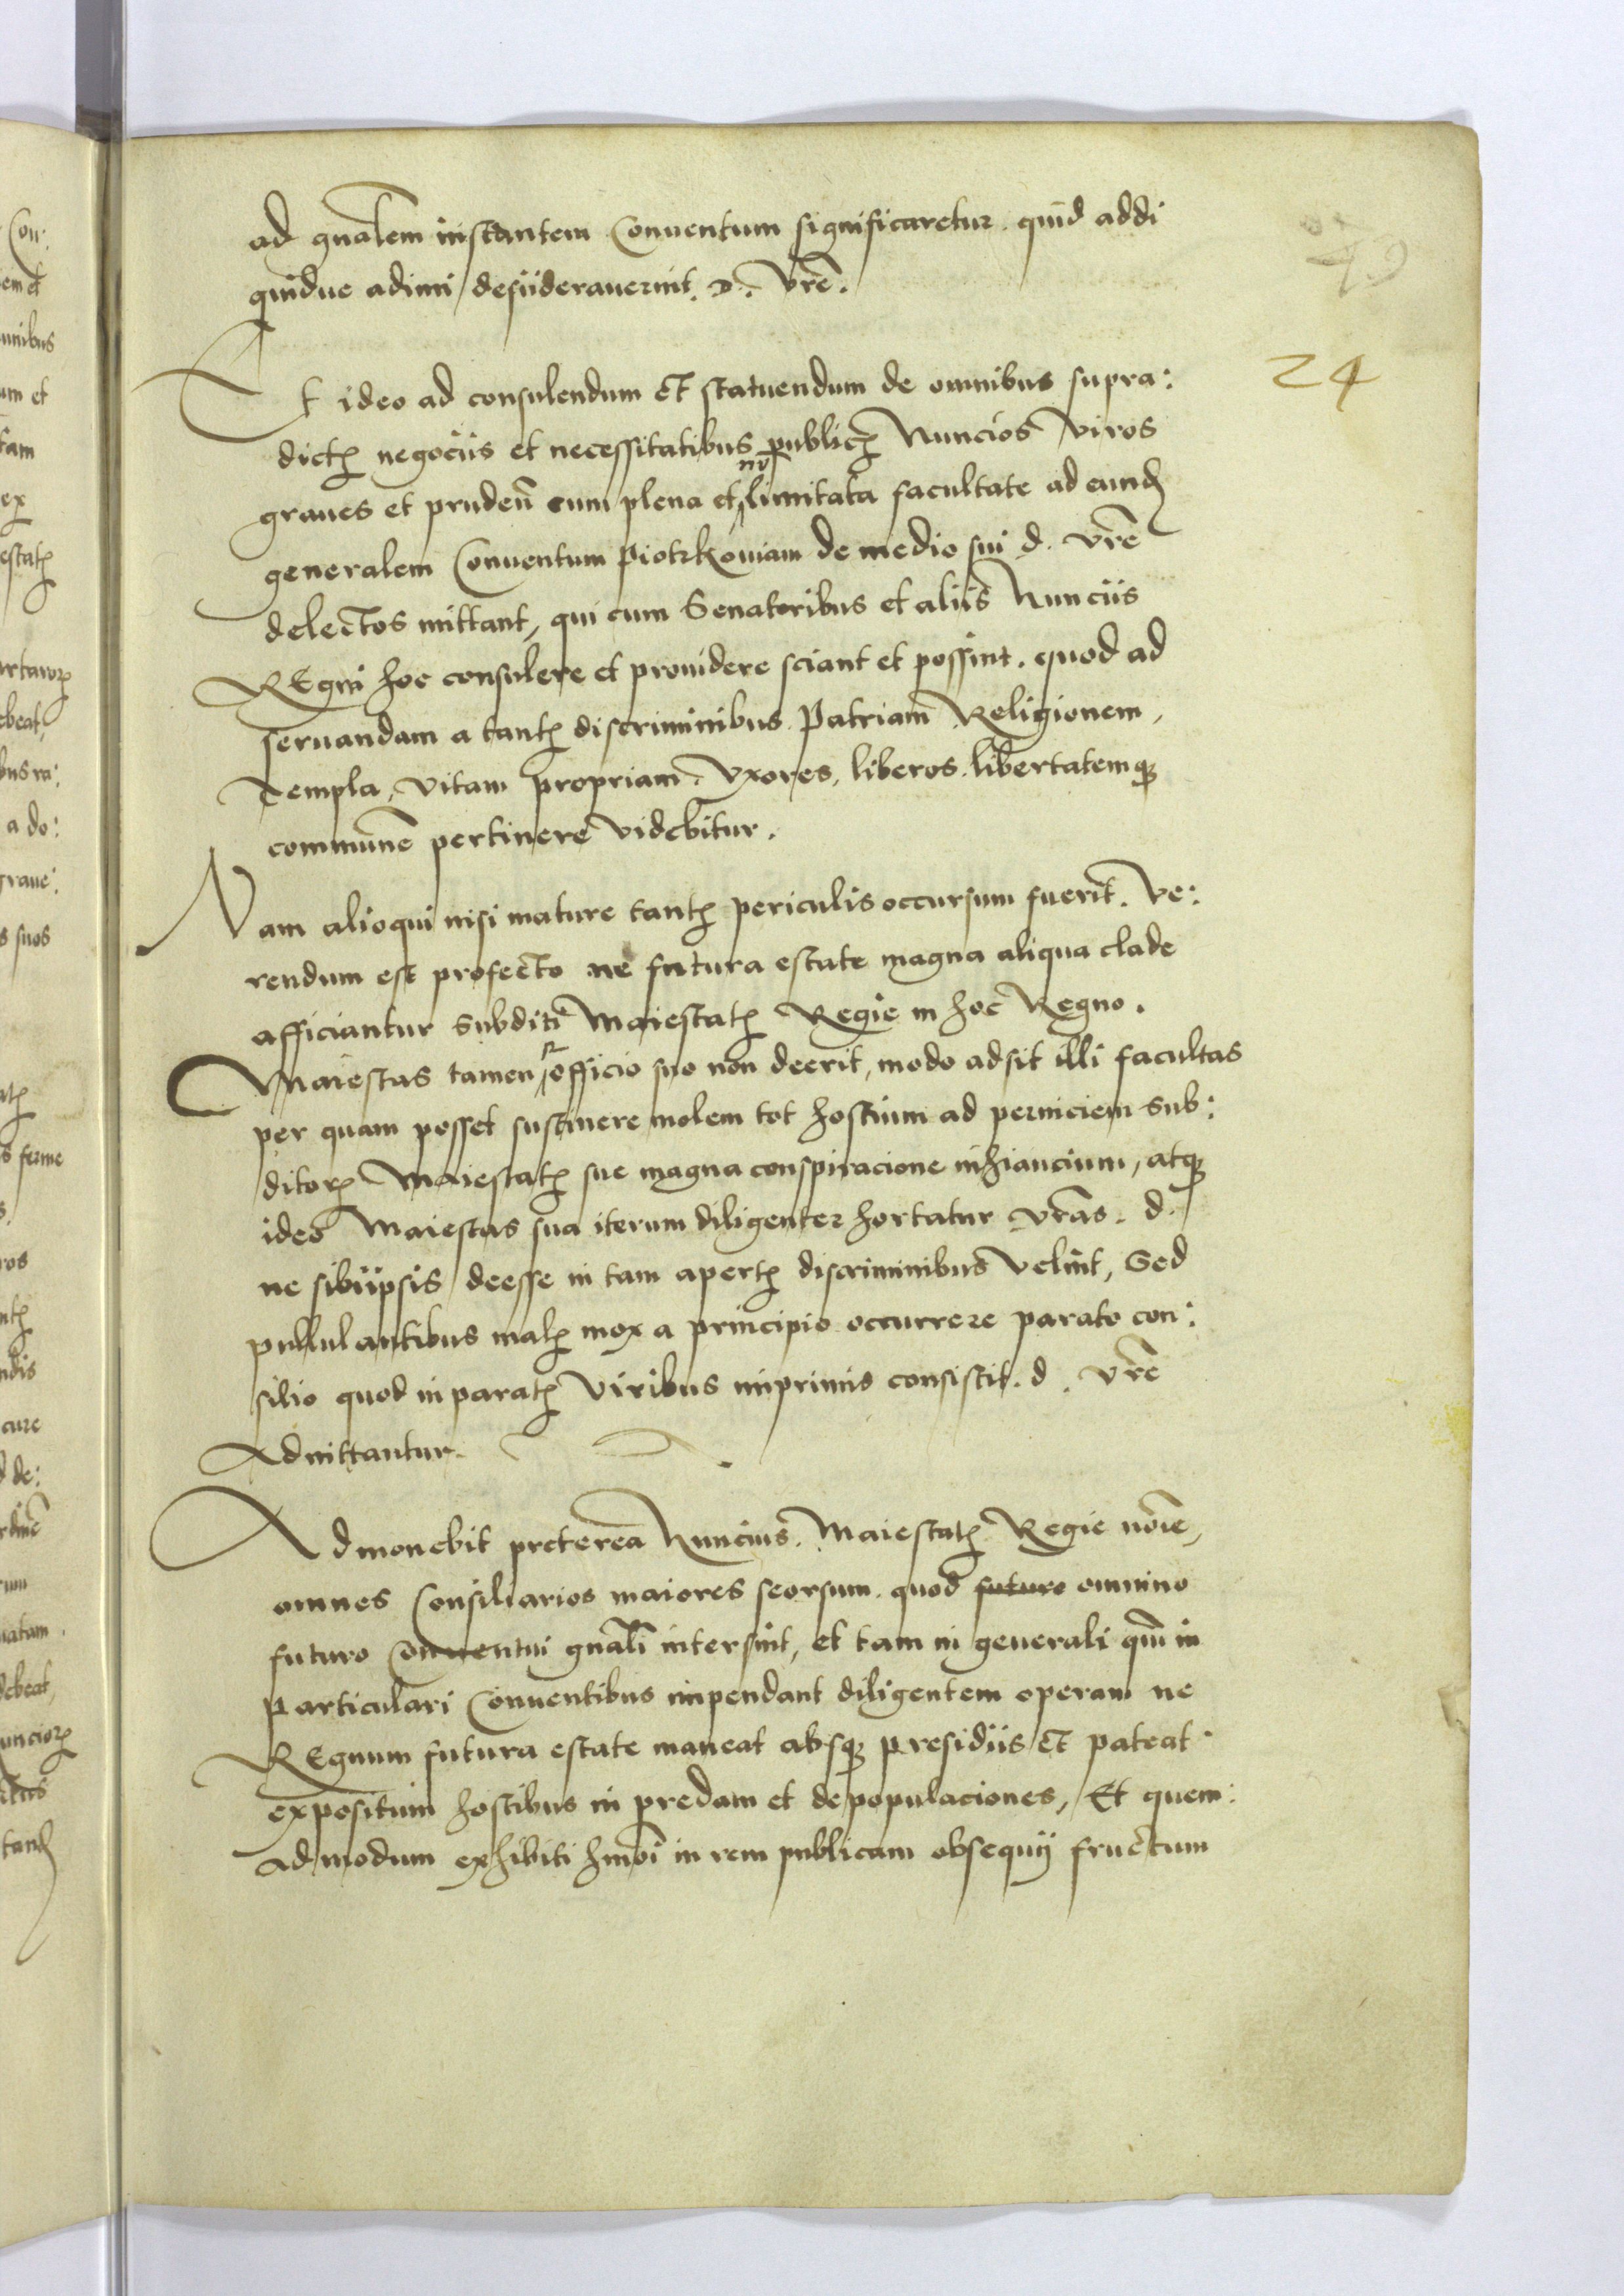 ad gnãlem instantem Conuentum significaretur. quid addi
quidue adimi desiiderauerint. D. Vrẽ.
79
24
Et ideo ad consulendum et statuendum de omnibus supra:
dictꝭ negociis et necessitatibus publicꝭ Nuncios Viros
graues et prudeñ cum plena et limitata facultate ad eundꝭ
generalem Conuentum Piotrkouiam de medio sui d. vrẽ
delectos mittant, qui cum Senatoribus et aliis Nunciis
REgni hoc consulere et prouidere sciant et possint. quod ad
seruandam a tantꝭ discriminibus Patriam Religionem,
Templa, Vitam propriam. Vxores, liberos. libertatemqꝫ
communẽ pertinere Videbitur.
Nam alioqui nisi mature tantꝭ periculis occursum fuerit. Ve:
rendum est profecto ne futura estate magna aliqua clade
afficiantur Subditi Maiestatꝭ Regie in hoc Regno.
Maiestas tamen officio suo non deerit, modo adsit illi facultas
per quam posset sustinere molem tot hostium ad perniciem Sub:
ditorꝭ Maiestatꝭ sue magna conspiracione inhiancium, atqꝫ
ideo Maiestas sua iterum diligenter hortatur vrãs. d.
ne sibiipsis deesse in tam apertꝭ discriminibus Velint, Sed
pullulantibus malꝭ mox a principio occurrere parato con:
silio quod in paratꝭ Viribus inprimis consistit. d. vrẽ
Admittantur.
Admonebit preterea Nuncius. Maiestatꝭ Regie noĩe,
omnes Consiliarios maiores seorsum. quod futuro omnino
futuro Conuentui gnãli intersint, et tam in generali qm̃ in
Particulari Conuentibus impendant diligentem operam ne
REgnum futura estate maneat absqꝫ presidiis et pateat
expositum hostibus in predam et depopulaciones, Et quem:
admodum exhibiti hmõi in rem publicam obsequij fructum